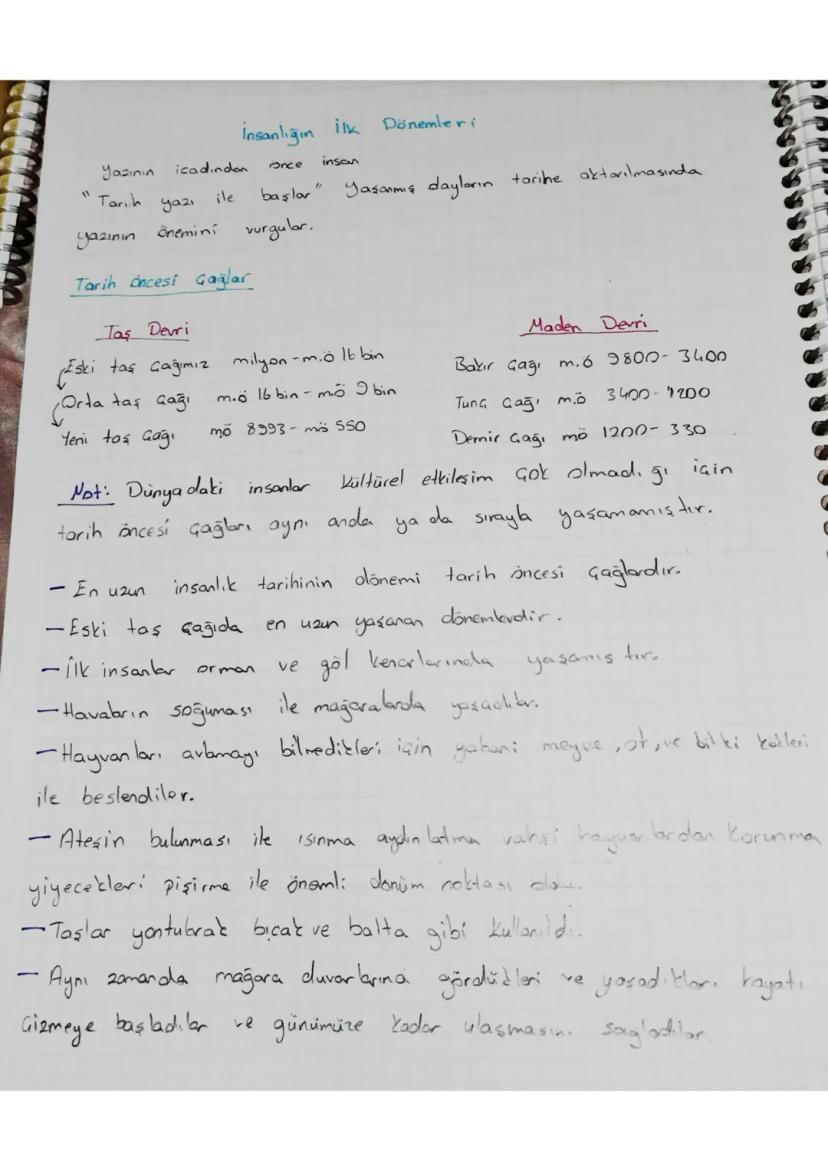 İnsanlığın İlk Dönemleri
Yazının icadından önce insan
"Tarih yazı ile başlar" Yaşanmış dayların tarihe aktarılmasında
yazının önemini vurgular.
Tarih öncesi Çağlar
Taş Devri
Eski taş çağımız milyon - m.ö 16 bin
Orta taş çağı m.ö 16 bin - mö 9 bin
Yeni taş çağı mö 8993 - mö 550
Maden Devri
Bakır çağı m.ö 9800 - 3400
Tunç çağı m.ö 3400 - 1200
Demir çağı mö 1200 - 330
Not: Dünyadaki insanlar kültürel etkileşim çok olmadığı için
tarih öncesi çağları aynı anda ya da sırayla yaşamamıştır.
- En uzun insanlık tarihinin dönemi tarih öncesi çağlardır.
- Eski taş çağıda en uzun yaşanan dönemlerdir.
- İlk insanlar orman ve göl kenarlarında yaşamıştır.
- Havaların soğuması ile mağaralarda yaşadılar.
- Hayvanları avlamayı bilmedikleri için yabani meyve, ot, ve bitki kökleri
ile beslendiler.
- Ateşin bulunması ile ısınma aydınlatma vahşi hayvanlardan korunma
yiyecekleri pişirme ile önemli dönüm noktası oldu.
- Taşlar yontularak bıçak ve balta gibi kullanıldı.
- Aynı zamanda mağara duvarlarına gördükleri ve yaşadıkları hayatı
çizmeye başladılar ve günümüze kadar ulaşmasını sağladılar.